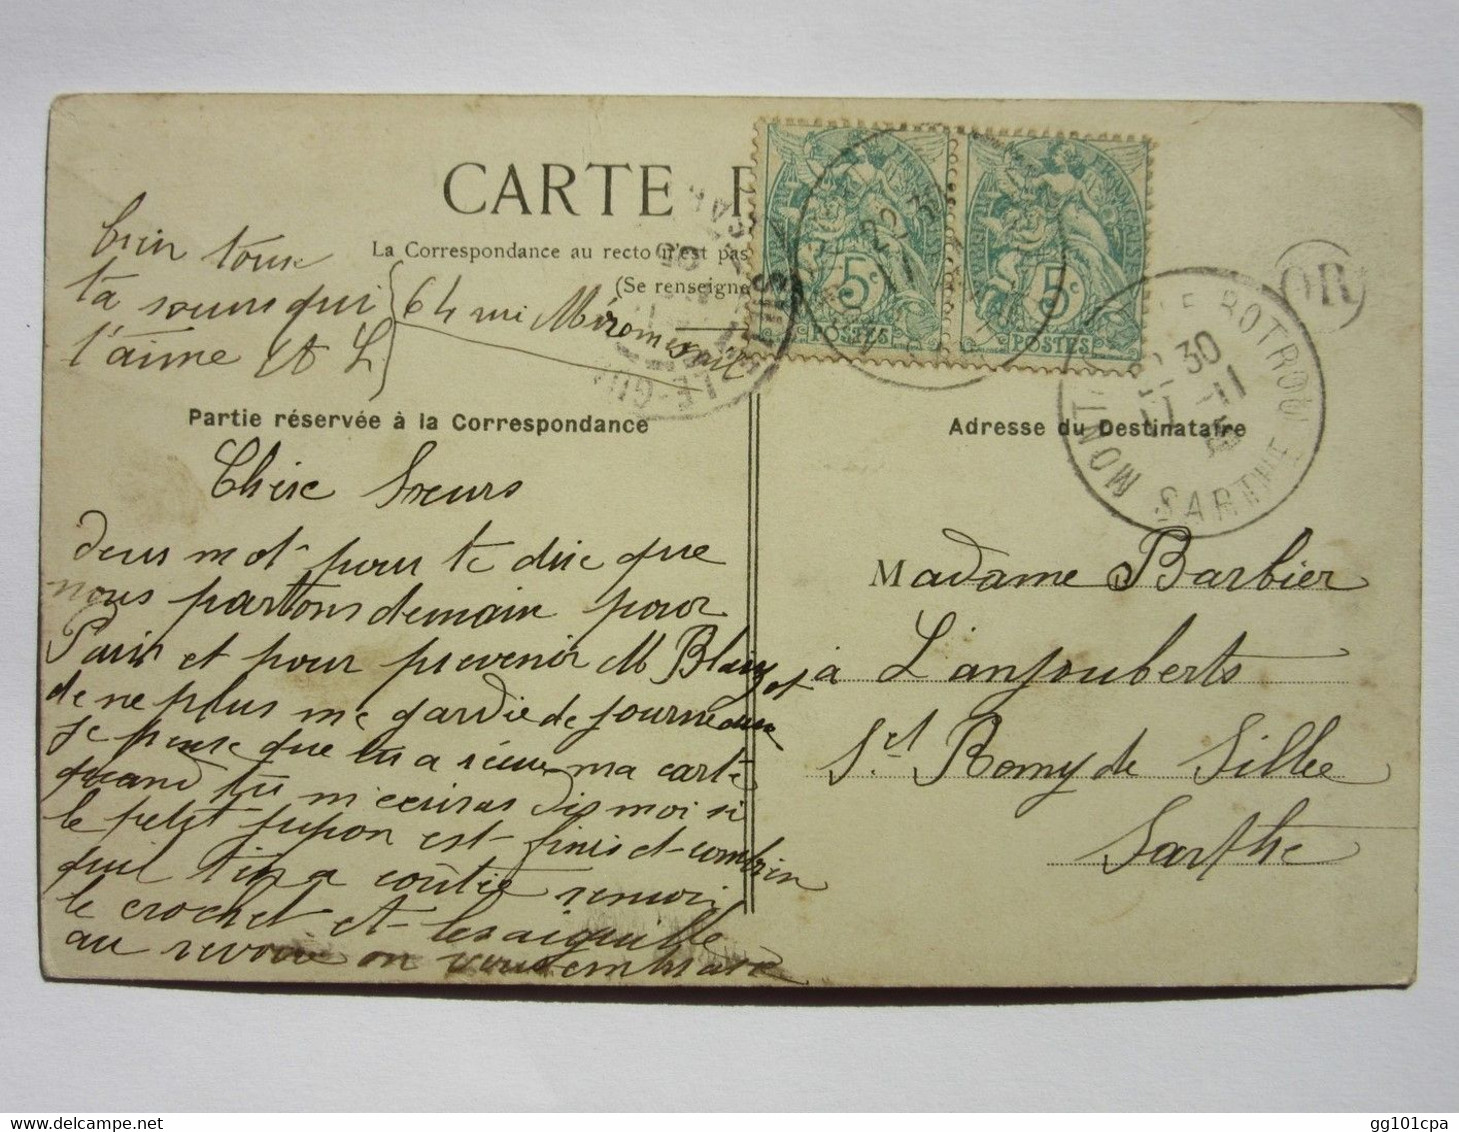 CARTE P
La Correspondance au recto n'est pas
(Se renseigne
Partie réservée à la Correspondance
Chère Soeurs
deux mot pour te dire que
nous partons demain pour
Paris et pour prevenir M Blaizot
de ne plus me gardé de journeaux
Je pense que tu a reçue ma carte
quand tu m'écriras dis moi si
le petit jupon est finis et combien
quil t'en a coûtée renvoi
le crochet et les aiguille
au revoire on vous embrasse
bien tous
ta soeurs qui
t'aime A L
64 rue Miromesnil
Adresse du Destinataire
Madame Barbier
à L'anjouberts
St Romy de Sillée
Sarthe
5c 5c
POSTES POSTES
OR
MONT LE ROTROU
30
11
SARTHE
gg101cpa